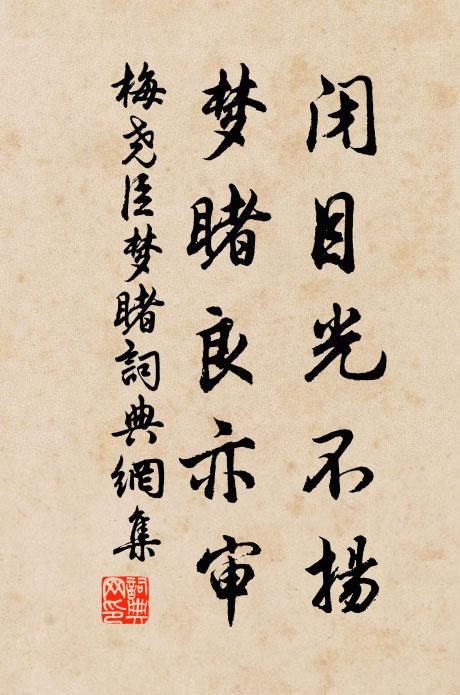 闭目光不扬
梦睹良亦审
梅尧臣梦睹词典網集
詞典网印